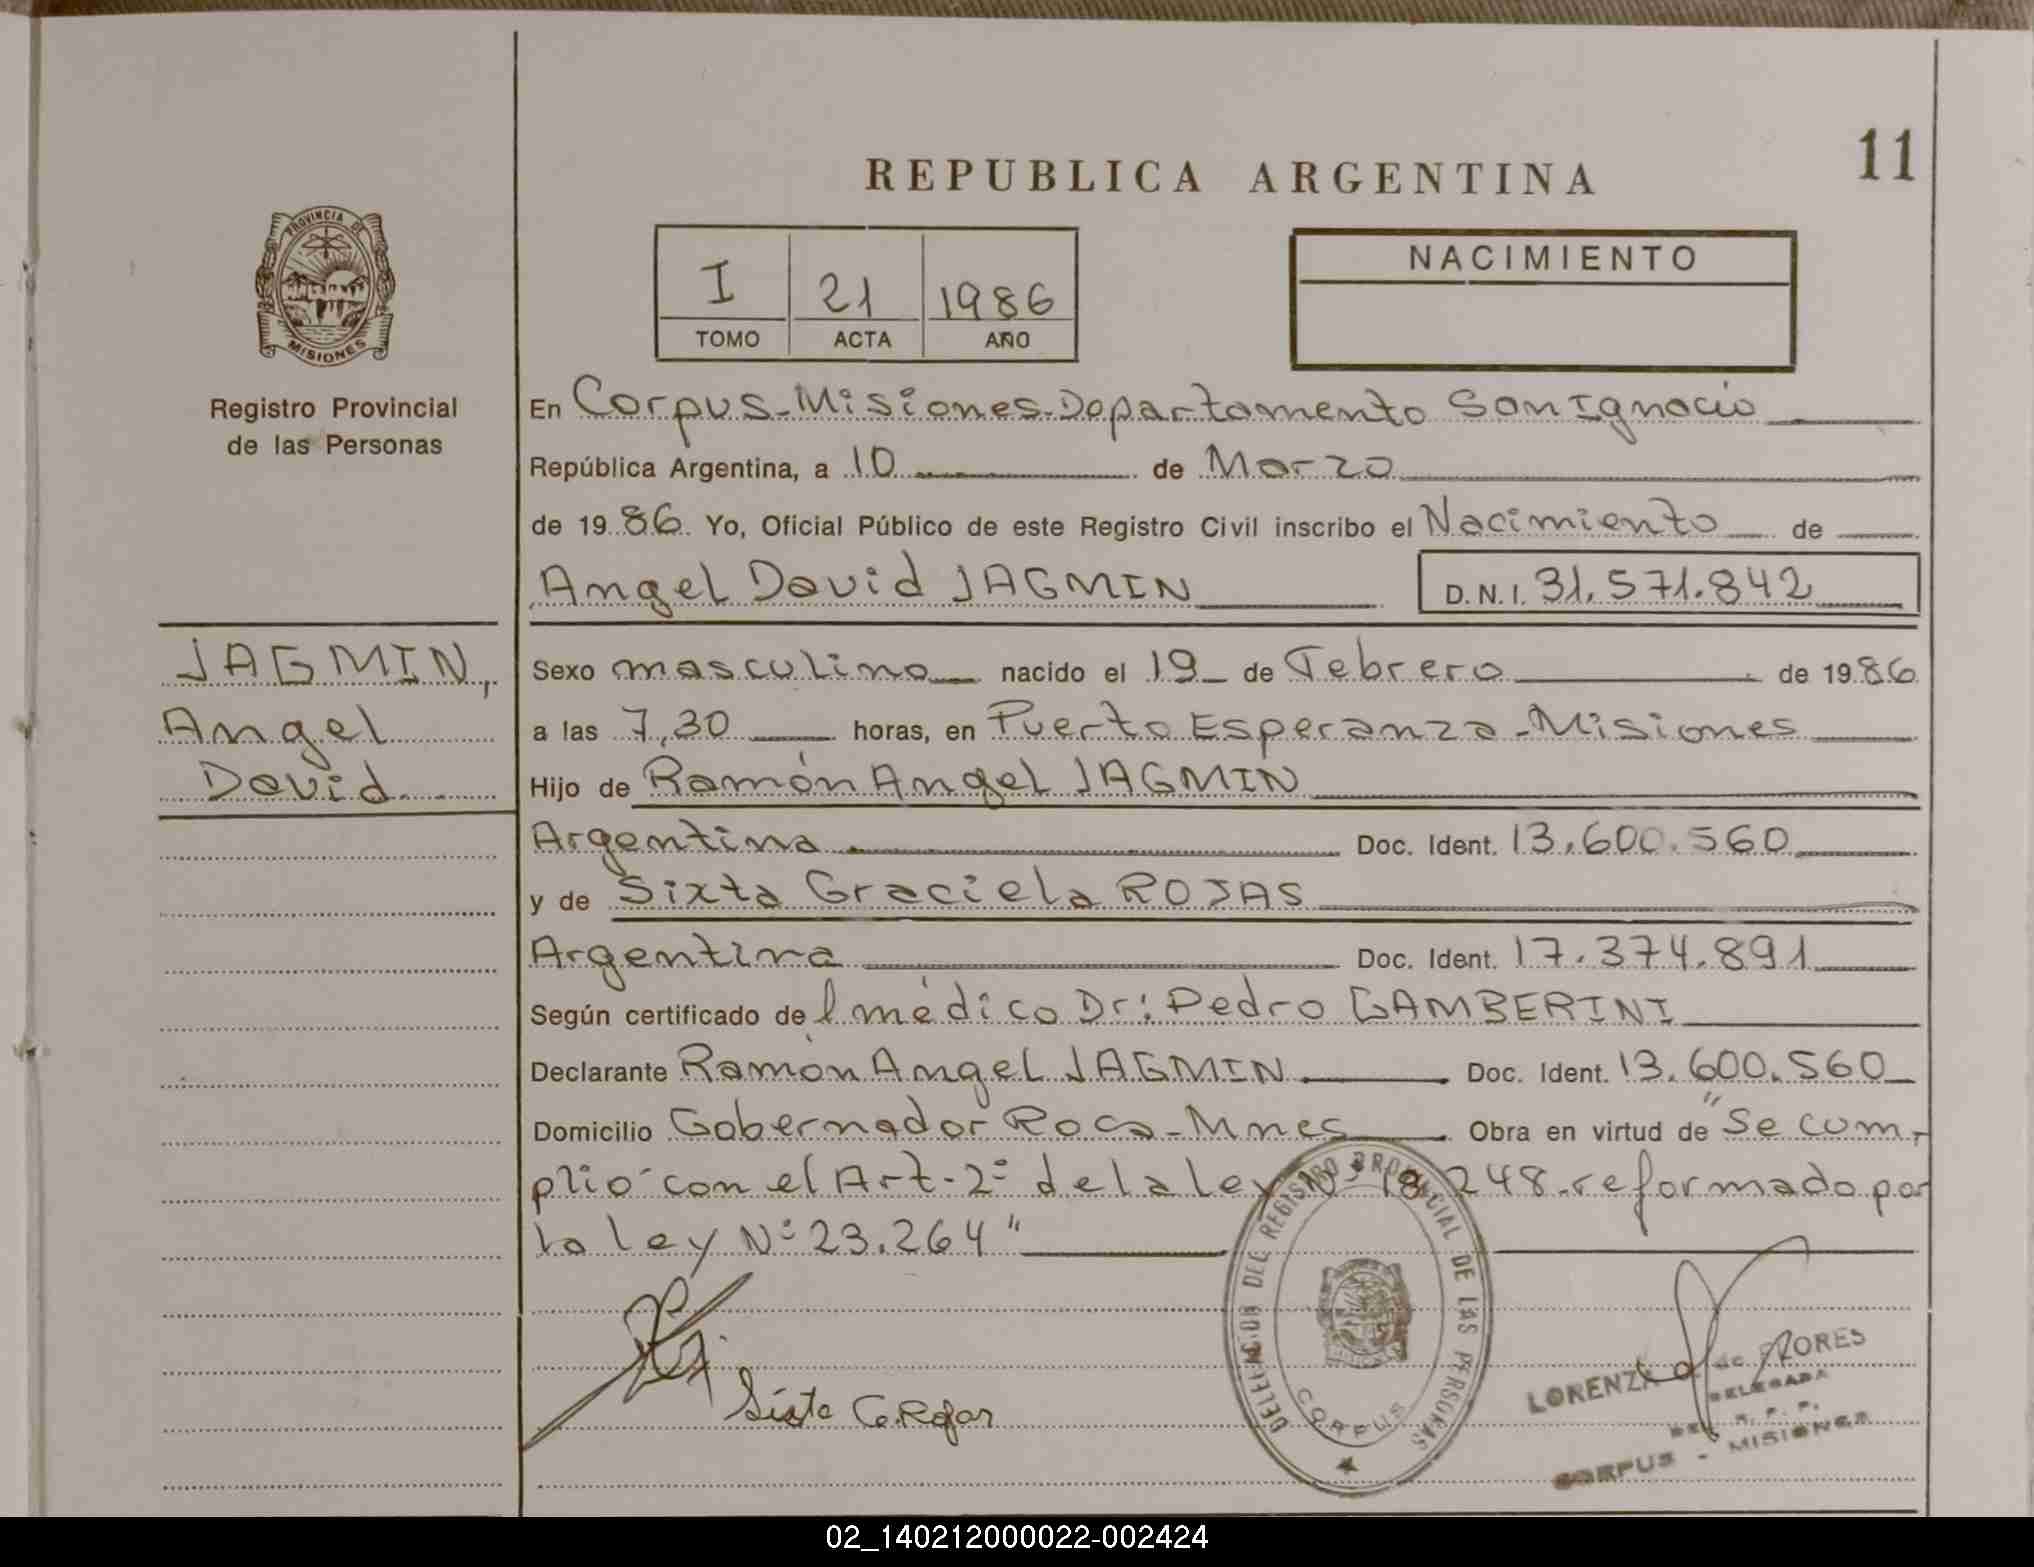 11
REPUBLICA ARGENTINA
PROVINCIA DE
MISIONES
Registro Provincial
de las Personas
I 21 1986
TOMO ACTA AÑO
NACIMIENTO
En Corpus-Misiones-Departamento San Ignacio
República Argentina, a 10 de Marzo
de 1986. Yo, Oficial Público de este Registro Civil inscribo el Nacimiento de
Angel David JAGMIN D.N.I. 31.571.842
JAGMIN,
Angel
David
Sexo masculino nacido el 19 de Febrero de 1986
a las 7,30 horas, en Puerto Esperanza-Misiones
Hijo de Ramón Angel JAGMIN
Argentina Doc. Ident. 13.600.560
y de Sixta Graciela ROJAS
Argentina Doc. Ident. 17.374.891
Según certificado del médico Dr: Pedro GAMBERINI
Declarante Ramón Angel JAGMIN Doc. Ident. 13.600.560
Domicilio Gobernador Roca-Mnes Obra en virtud de "Se cum-
plió con el Art. 2º de la ley Nº 18.248 reformado por
la ley Nº 23.264"
Sixta G. Rojas
DELEGACION DEL REGISTRO PROVINCIAL DE LAS PERSONAS
CORPUS
LORENZA de FLORES
DELEGADA
DEL R. P. P.
CORPUS - MISIONES
02_140212000022-002424